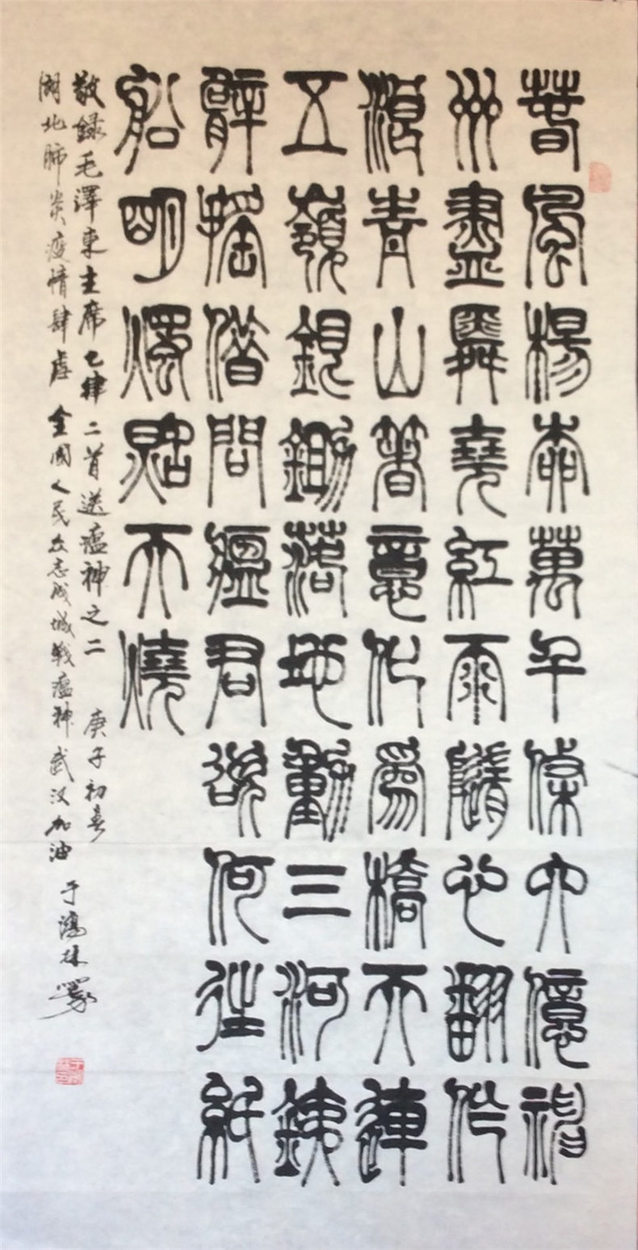 春風楊柳萬千條六億神
州盡舜堯紅雨隨心翻作
浪青山著意化為橋天連
五嶺銀鋤落地動三河鐵
臂搖借問瘟君欲何往紙
船明燭照天燒
敬録毛澤東主席七律二首送瘟神之二 庚子初春
湖北肺炎疫情肆虐 全國人民众志成城戰瘟神 武汉加油 于鴻林